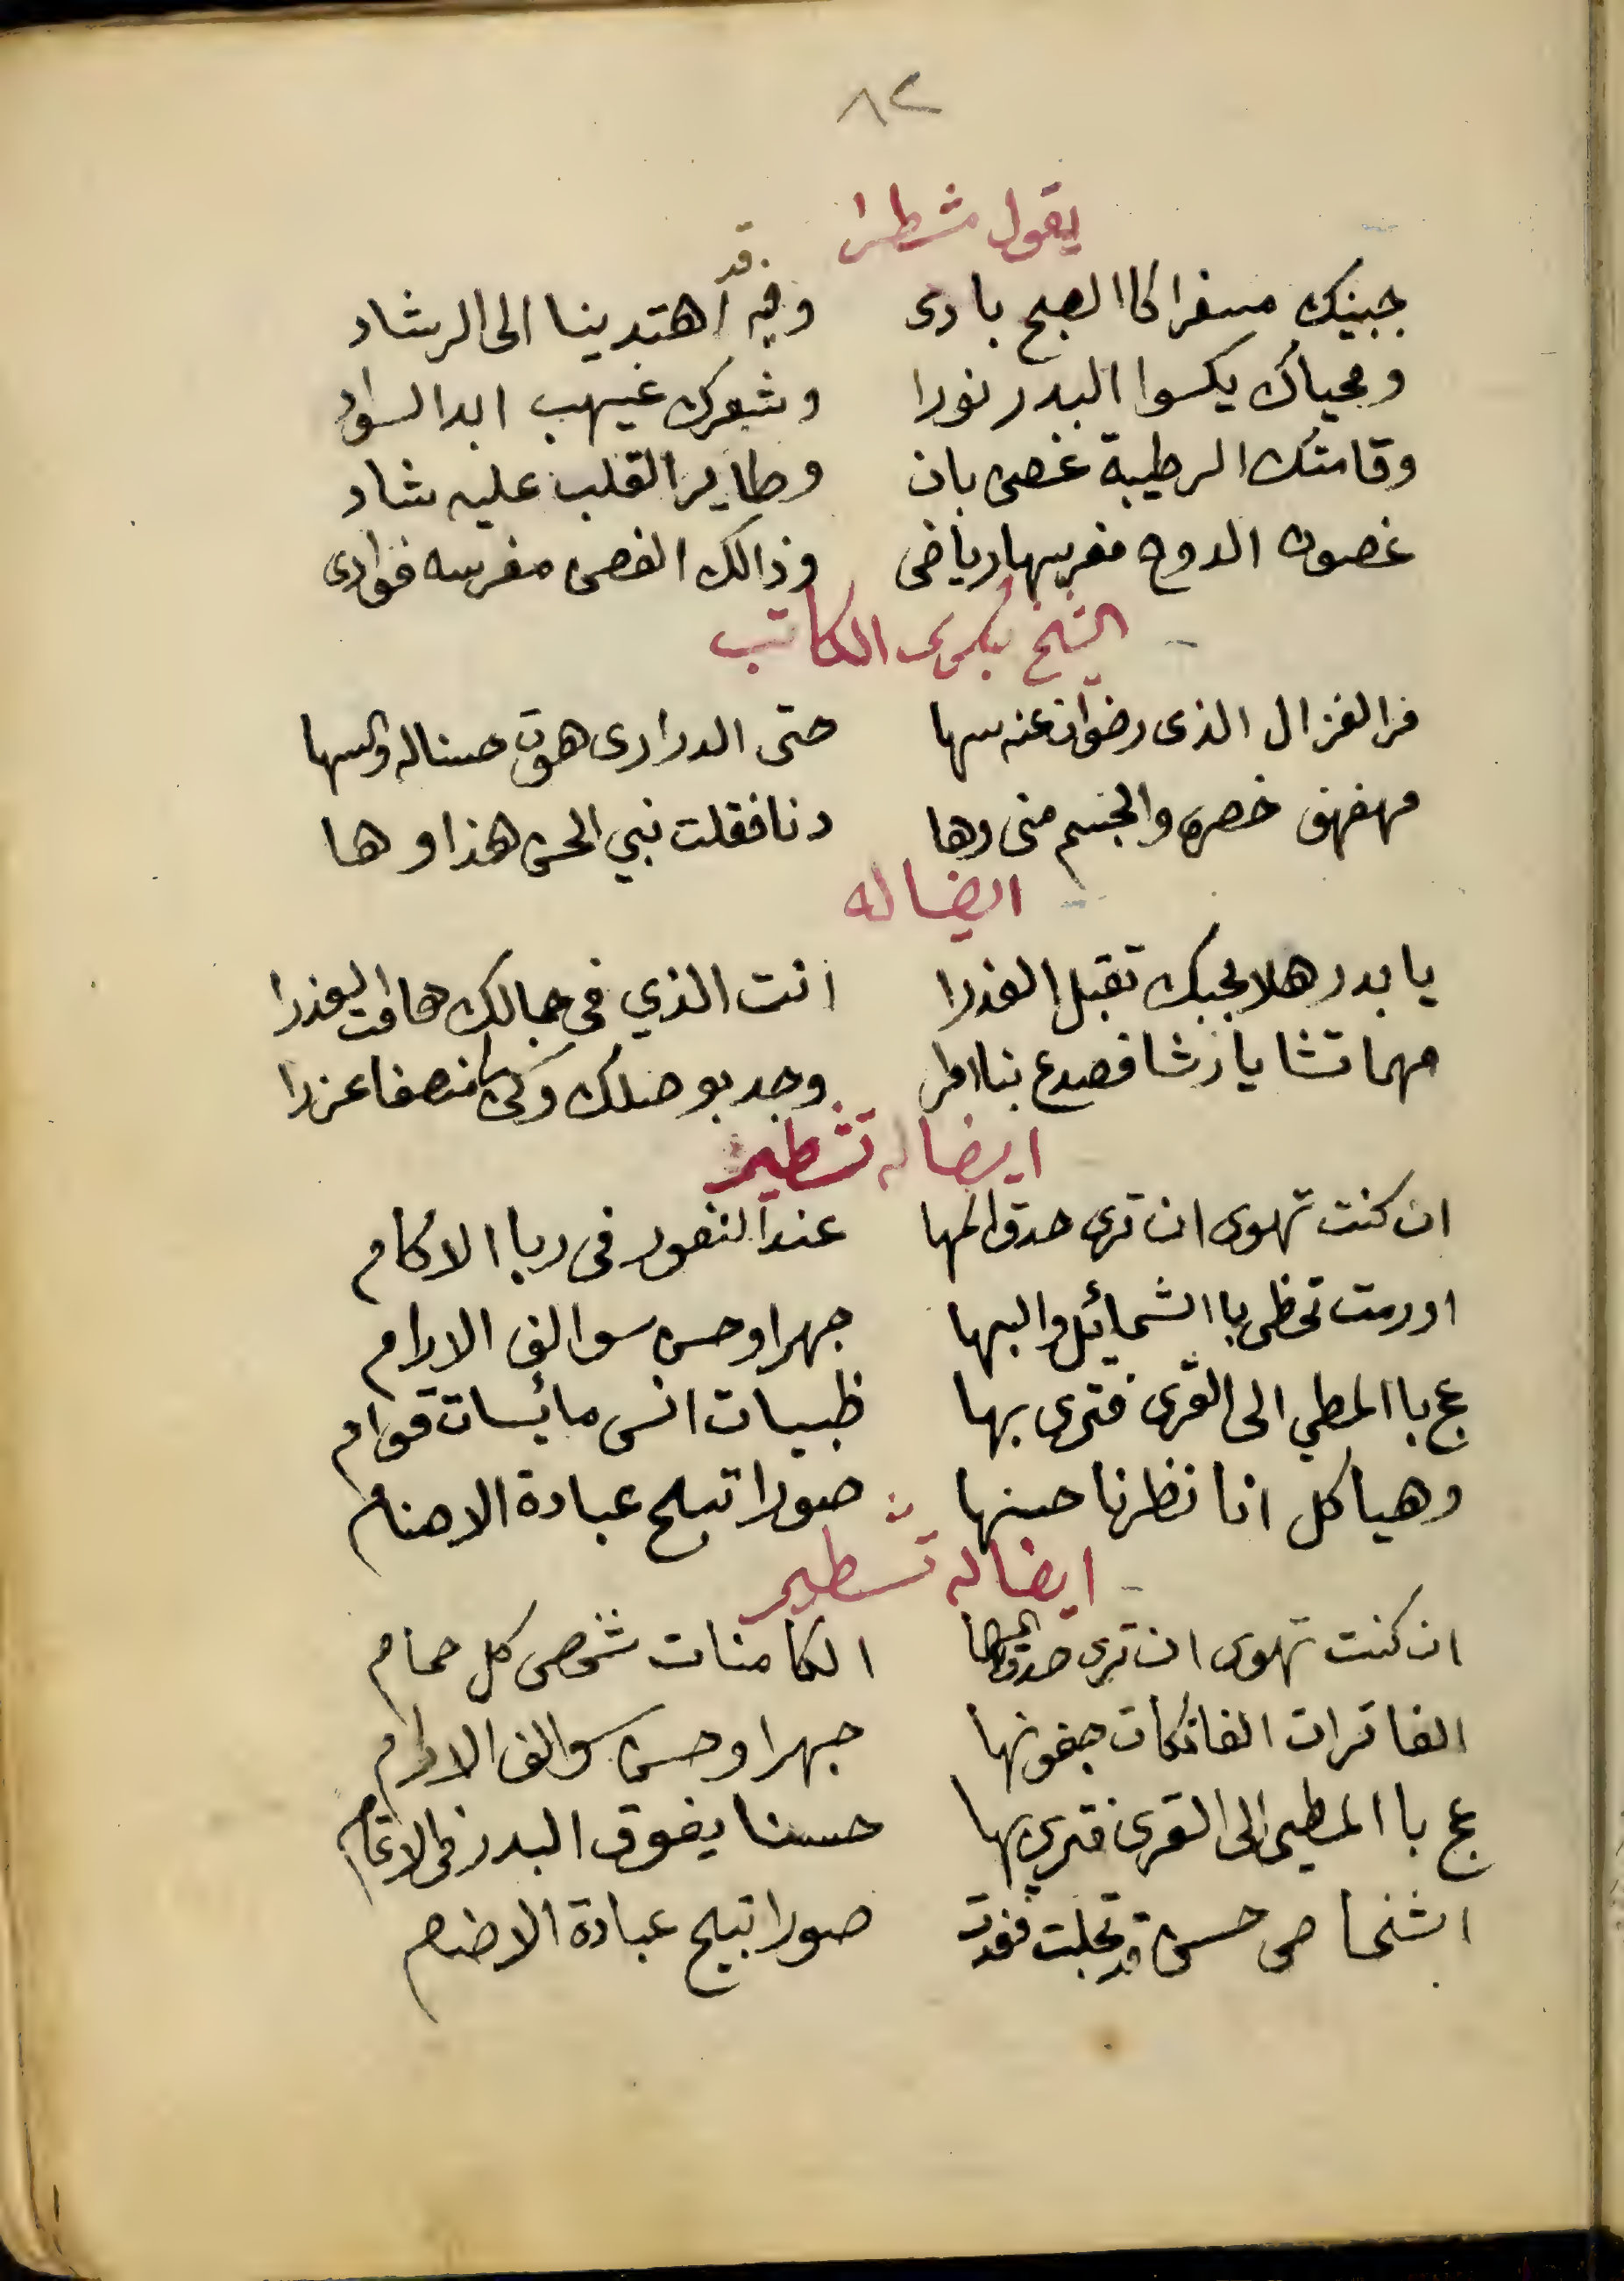 ٨٢
يقول مشطرا
جبينك مسفرا كاالصبح بادى وفيه قد اهتدينا الى الرشاد
ومحياك يكسوا البدر نورا وشعرك غيهب ابدا السواد
وقامتك الرطيبة غصن بان وطاير القلب عليه شاد
غصون الدوح مغرسها رياض وذالك الغصن مغرسه فوادى
الشيخ بكرى الكاتب
فر الغزال الذى رضوان عنه سها حتى الدرارى هوت حسنا له والسها
مهفهف خصره والجسم منى وها دنا فقلت نبي الحسن هذا وها
ايضا له
يا بدر هلا بحبك تقبل العذرا انت الذي فى جمالك هامت العذرا
مهما تشا يا رشا فصدع بنا امر وجد بوصلك وكن منصفا عزرا
ايضا له تشطير
ان كنت تهوى ان ترى حدق المها عند النفور فى ربا الاكام
او رمت تحظى باالشمائل والبها جهرا وحسن سوالف الارام
عج باالمطي الى القرى فترى بها ظبيات انس مائسات قوام
وهياكل انا نظرنا حسنها صورا تبلح عبادة الاصنام
ايضا له تشطير
ان كنت تهوى ان ترى حدق المها الكامنات شخص كل حمام
الفاترات الفاتكات جفونها جهرا وحسن سوالف الارام
عج باالمطي الى القرى فترى بها حسنا يفوق البدر فى الاتمام
اشخاص حسن قد تجلت فغدت صورا تبيح عبادة الاصنام